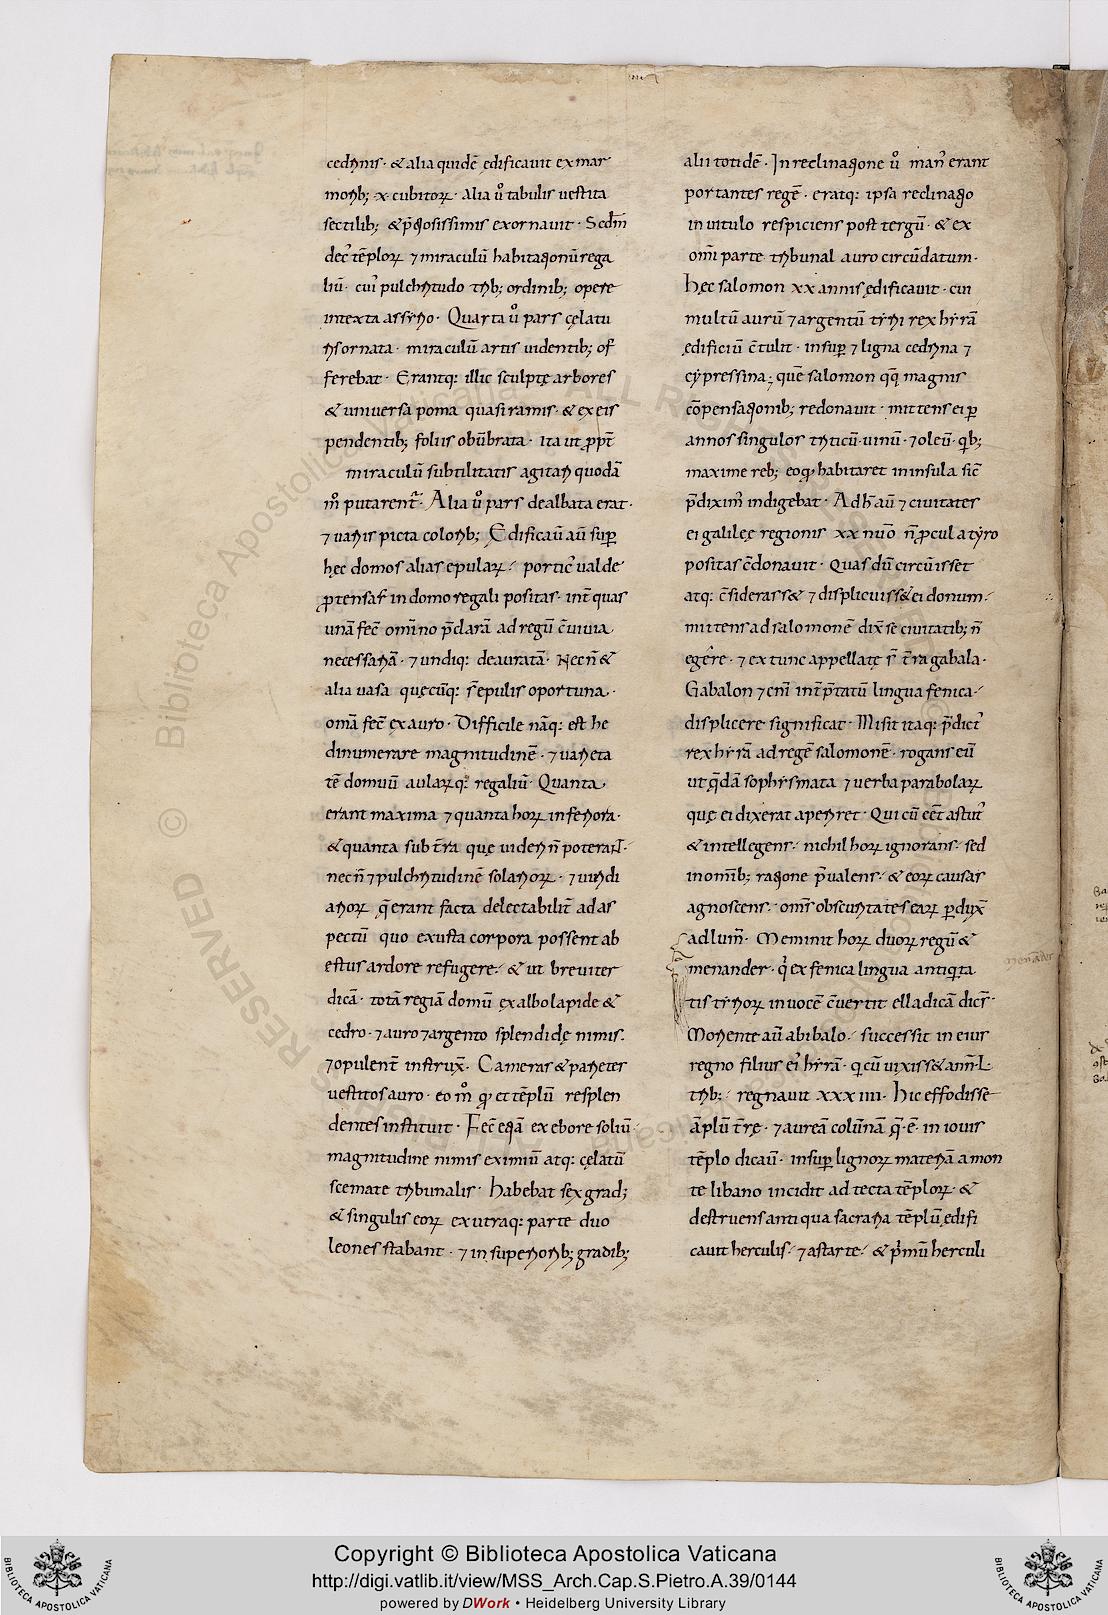 cedrinis· & alia quidē ędificauit ex mar
morib; ·x· cubitorꝝ· alia ů tabulis uestita
sectilib; & p̄tiosissimis exornauit· Scdm̄
decꝰ tēplorꝝ ⁊ miraculū habitationū rega
liū· cuiꝰ pulchritudo trib; ordinib; opere
intexta assyrio· Quarta ů pars cęlatu
ris ornata· miraculū artis uidentib; of
ferebat· Erantq: illic sculptę arbores
& uniuersa poma quasi ramis· & ex eis
pendentib; foliis obūbrata· ita ut ꝓpt̄
miraculū subtilitatis agitari quodā
m̊ putarent᷑· Alia ů pars dealbata erat·
⁊ uariis picta colorib; Edificauit aū suꝑ
hęc domos alias epularꝝ· porticꝰ ualde
ꝓtensas in domo regali positas· int̄ quas
unā fec̄ om̄ino p̄clarā ad regū c̄uiuia
necessariā· ⁊ undiq: deauratā· Necn̄ &
alia uasa quęcūq: s̄ epulis oportuna·
omā fec̄ ex auro· Difficile nāq: est he
dinumerare magnitudinē· ⁊ uarieta
tē domuū aularꝝq: regaliū· Quanta
erant maxima ⁊ quanta horꝝ inferiora·
& quanta sub t̄ra quę uideri n̄ poterant·
necn̄ ⁊ pulchritudinē solariorꝝ· ⁊ uiridi
ariorꝝ q̄ erant facta delectabilit̄ ad as
pectū quo exusta corpora possent ab
ęstus ardore refugere· & ut breuiter
dicā· totā regiā domū ex albo lapide &
cedro· ⁊ auro ⁊ argento splendidę nimis·
⁊ opulent̄ instrux̄· Cameras & parietes
uestitos auro· eo m̊ quo et tēplū resplen
dentes instituit· Fec̄ eq̄ā ex ebore soliū·
magnitudine nimis eximiū atq: cęlatū
scemate tribunalis· habebat sex grad;
& singulis eorꝝ ex utraq: parte duo
leones stabant· ⁊ in superiorib; gradib;
alii totidē· In reclinatione ů manꝰ erant
portantes regē· eratq: ipsa reclinatio
in uitulo respiciens post tergū· & ex
om̄i parte tribunal auro circūdatum·
hęc salomon xx annis ędificauit· cui
multū aurū ⁊ argentū tyri rex hyrā
ędificiū c̄tulit· insuꝑ ⁊ ligna cedrina ⁊
cypressina; quē salomon q̄q magnis
cōpensationib; redonauit· mittens ei ꝑ
annos singulos triticū· uinū· ⁊ oleū· qb;
maxime reb; eo qđ habitaret in insula sic̄
p̄diximꝰ indigebat· Ad h̄ aū ⁊ ciuitates
ei galileę regionis xx nuō n̄ ꝓcul a tyro
positas c̄donauit· Quas dū circūisset
atq: c̄siderass& ⁊ displicuiss& ei donum·
mittens ad salomonē dix̄ se ciuitatib; n̄
egēre· ⁊ ex tunc appellatę s̄ t̄ra gabala·
Gabalon ⁊ eni᷑ int̄p̄tatū lingua fenica·
displicere significat· Misit itaq: p̄dictꝰ
rex hyrā ad regē salomonē· rogans eū
ut q̄dā sophysmata ⁊ uerba parabolarꝝ
quę ei dixerat aperiret· Qui cū eēt astutꝰ
& intellegens· nichil horꝝ ignorans· sed
in om̄ib; ratione p̄ualens· & eorꝝ causas
agnoscens· om̄s obscuritates earꝝ ꝑdux̄
ad lum̄· Meminit horꝝ duorꝝ regū &
menander· qͥ ex fenica lingua antiqita
tis tyriorꝝ in uocē c̄uertit elladicā dicēs·
Moriente aū abibalo· successit in eius
regno filius eiꝰ hyrā· q cū uixiss& ann̄·L·
trib;· regnauit xxxiiii· hic effodisse
āplū t̄rę· ⁊ aureā colūnā q̄·ē· in iouis
tēplo dicauit· insuꝑ lignorꝝ materiā a mon
te libano incidit ad tecta tēplorꝝ· &
destruens antiqua sacraria tēplū ędifi
cauit herculis· ⁊ astarte· & pͥmū herculi
menander
Copyright © Biblioteca Apostolica Vaticana
http://digi.vatlib.it/view/MSS_Arch.Cap.S.Pietro.A.39/0144
powered by DWork • Heidelberg University Library